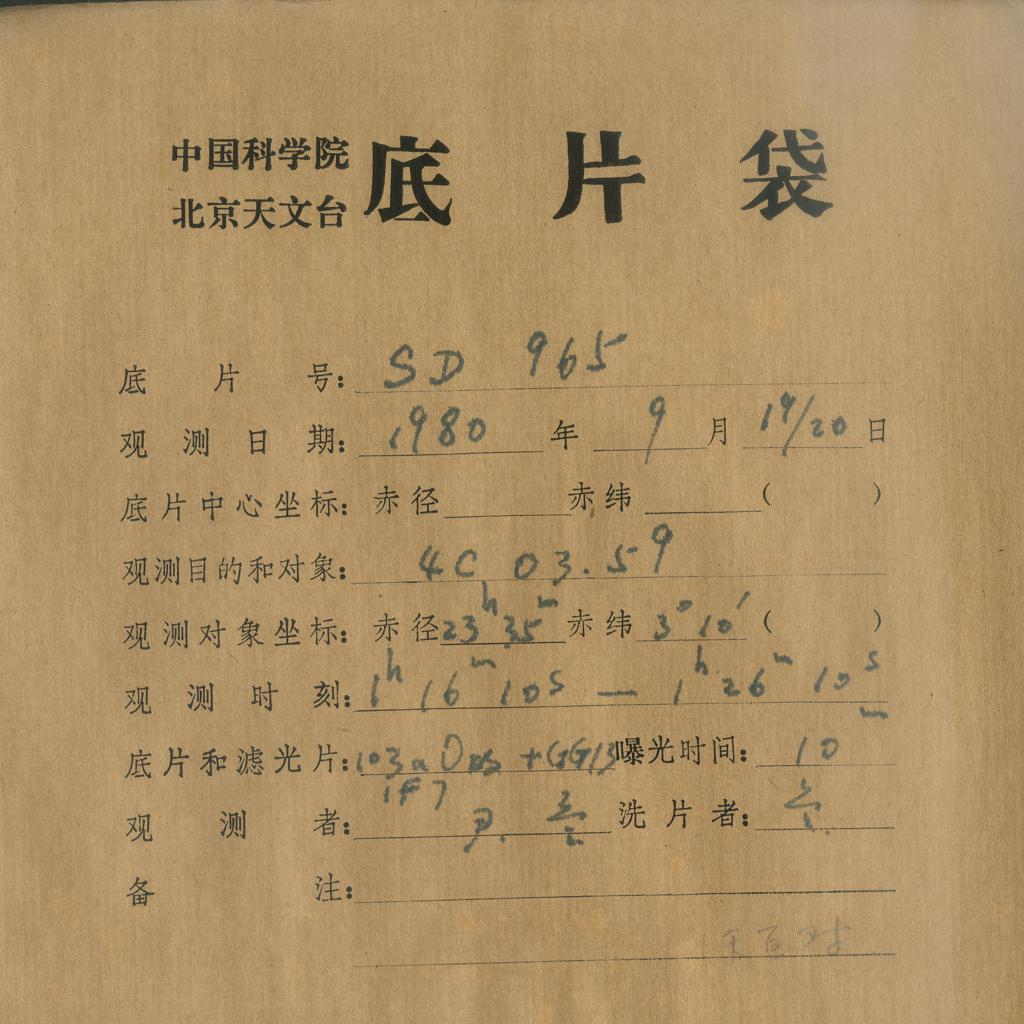 中国科学院
北京天文台
底片袋
底片号: SD 965
观测日期: 1980年 9月 19/20日
底片中心坐标: 赤径 赤纬 ( )
观测目的和对象: 4C 03.59
观测对象坐标: 赤径 23h 35m 赤纬 3° 10′ ( )
观测时刻: 1h 16m 10s — 1h 26m 10s
底片和滤光片: 103aO +GG13 曝光时间: 10m
1F7
观测者: 洗片者:
备注: